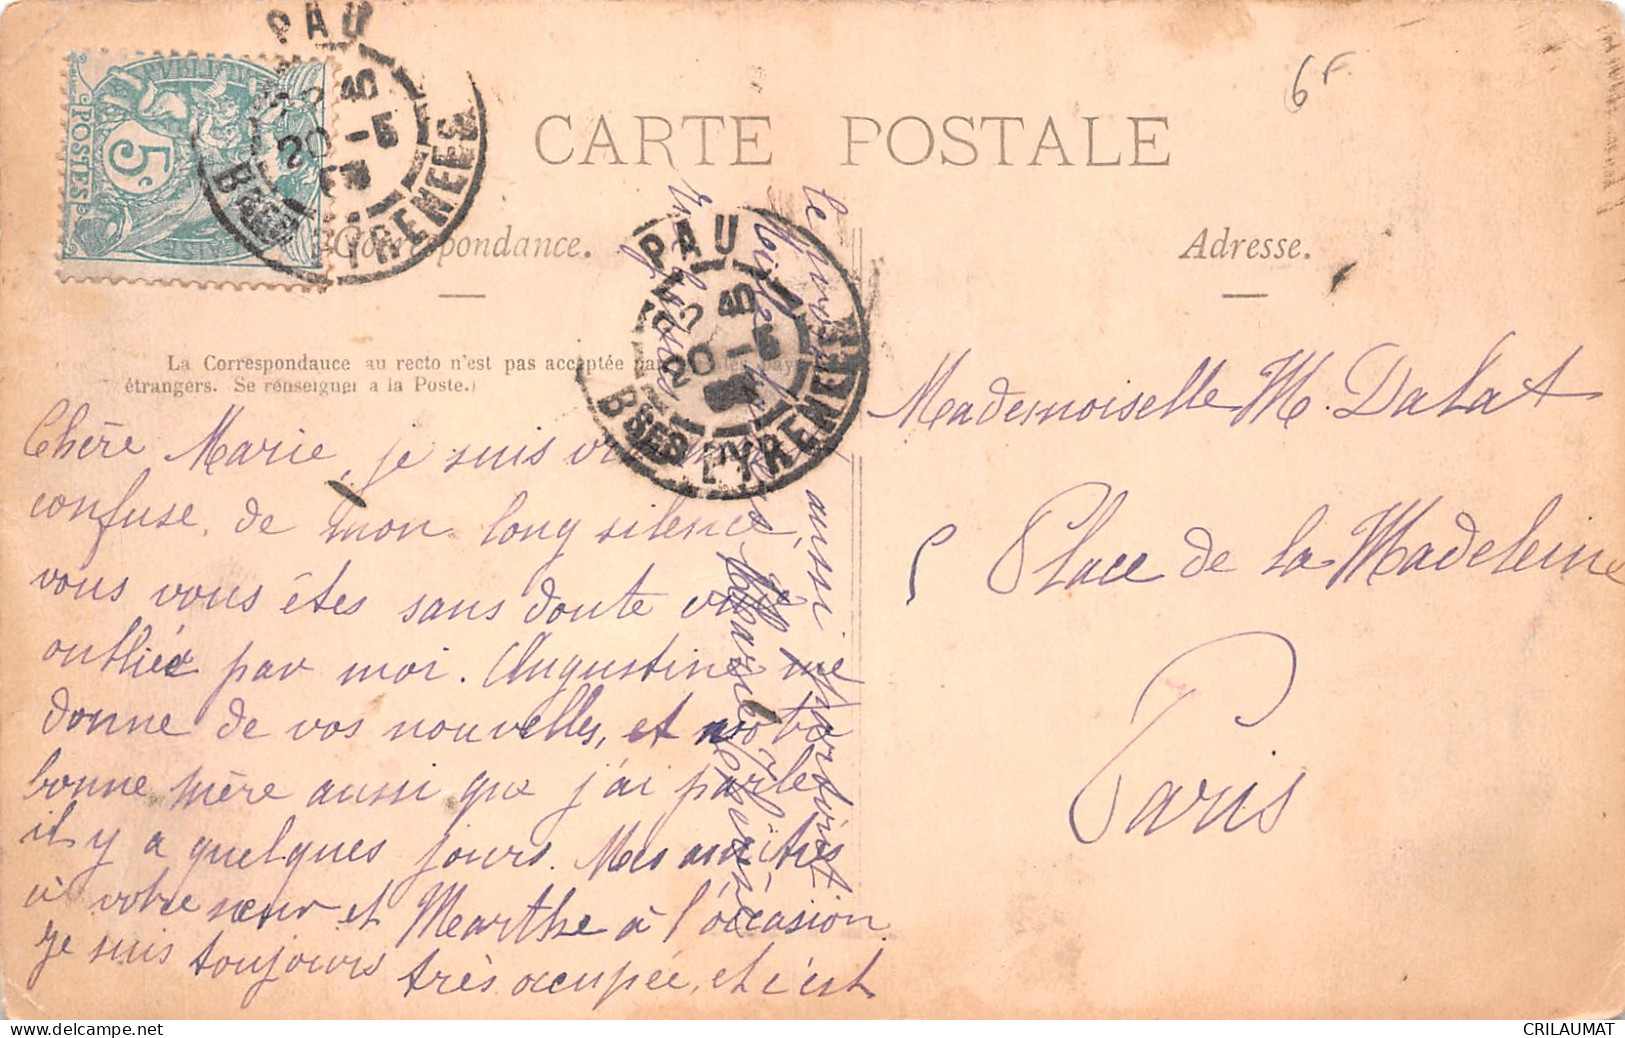 6F
CARTE POSTALE
Correspondance.
Adresse.
La Correspondance au recto n'est pas acceptée par
étrangers. Se renseigner a la Poste.)
POSTES
5c
PAU
40
20 -5
BSES PYRENEES
PAU
40
20 -5
BSES PYRENEES
Chère Marie, je suis
confuse, de mon long silence,
vous vous êtes sans doute
oubliée par moi. Augustine me
donne de vos nouvelles, et
bonne mère aussi que j'ai parlé
il y a quelques jours. Mes amitiés
à votre sœur et Marthe à l'occasion
je suis toujours très occupée, et c'est
aussi
Mademoiselle M. Dalat
5 Place de la Madeleine
Paris
CRILAUMAT